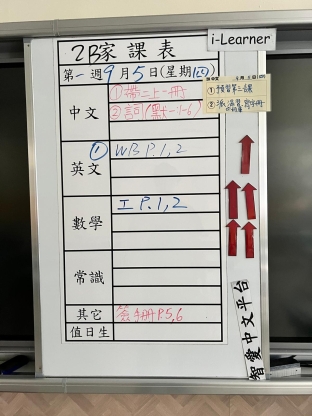 i-Learner
2B家課表
第一週9月5日(星期四)
中文
①帶二上一冊
②詞(默一1-6)
①預習第三課
②派溫習
英文
① WB P.1,2
數學
工 P.1,2
常識
其它
簽手冊P.5,6
值日生
智愛中文平台